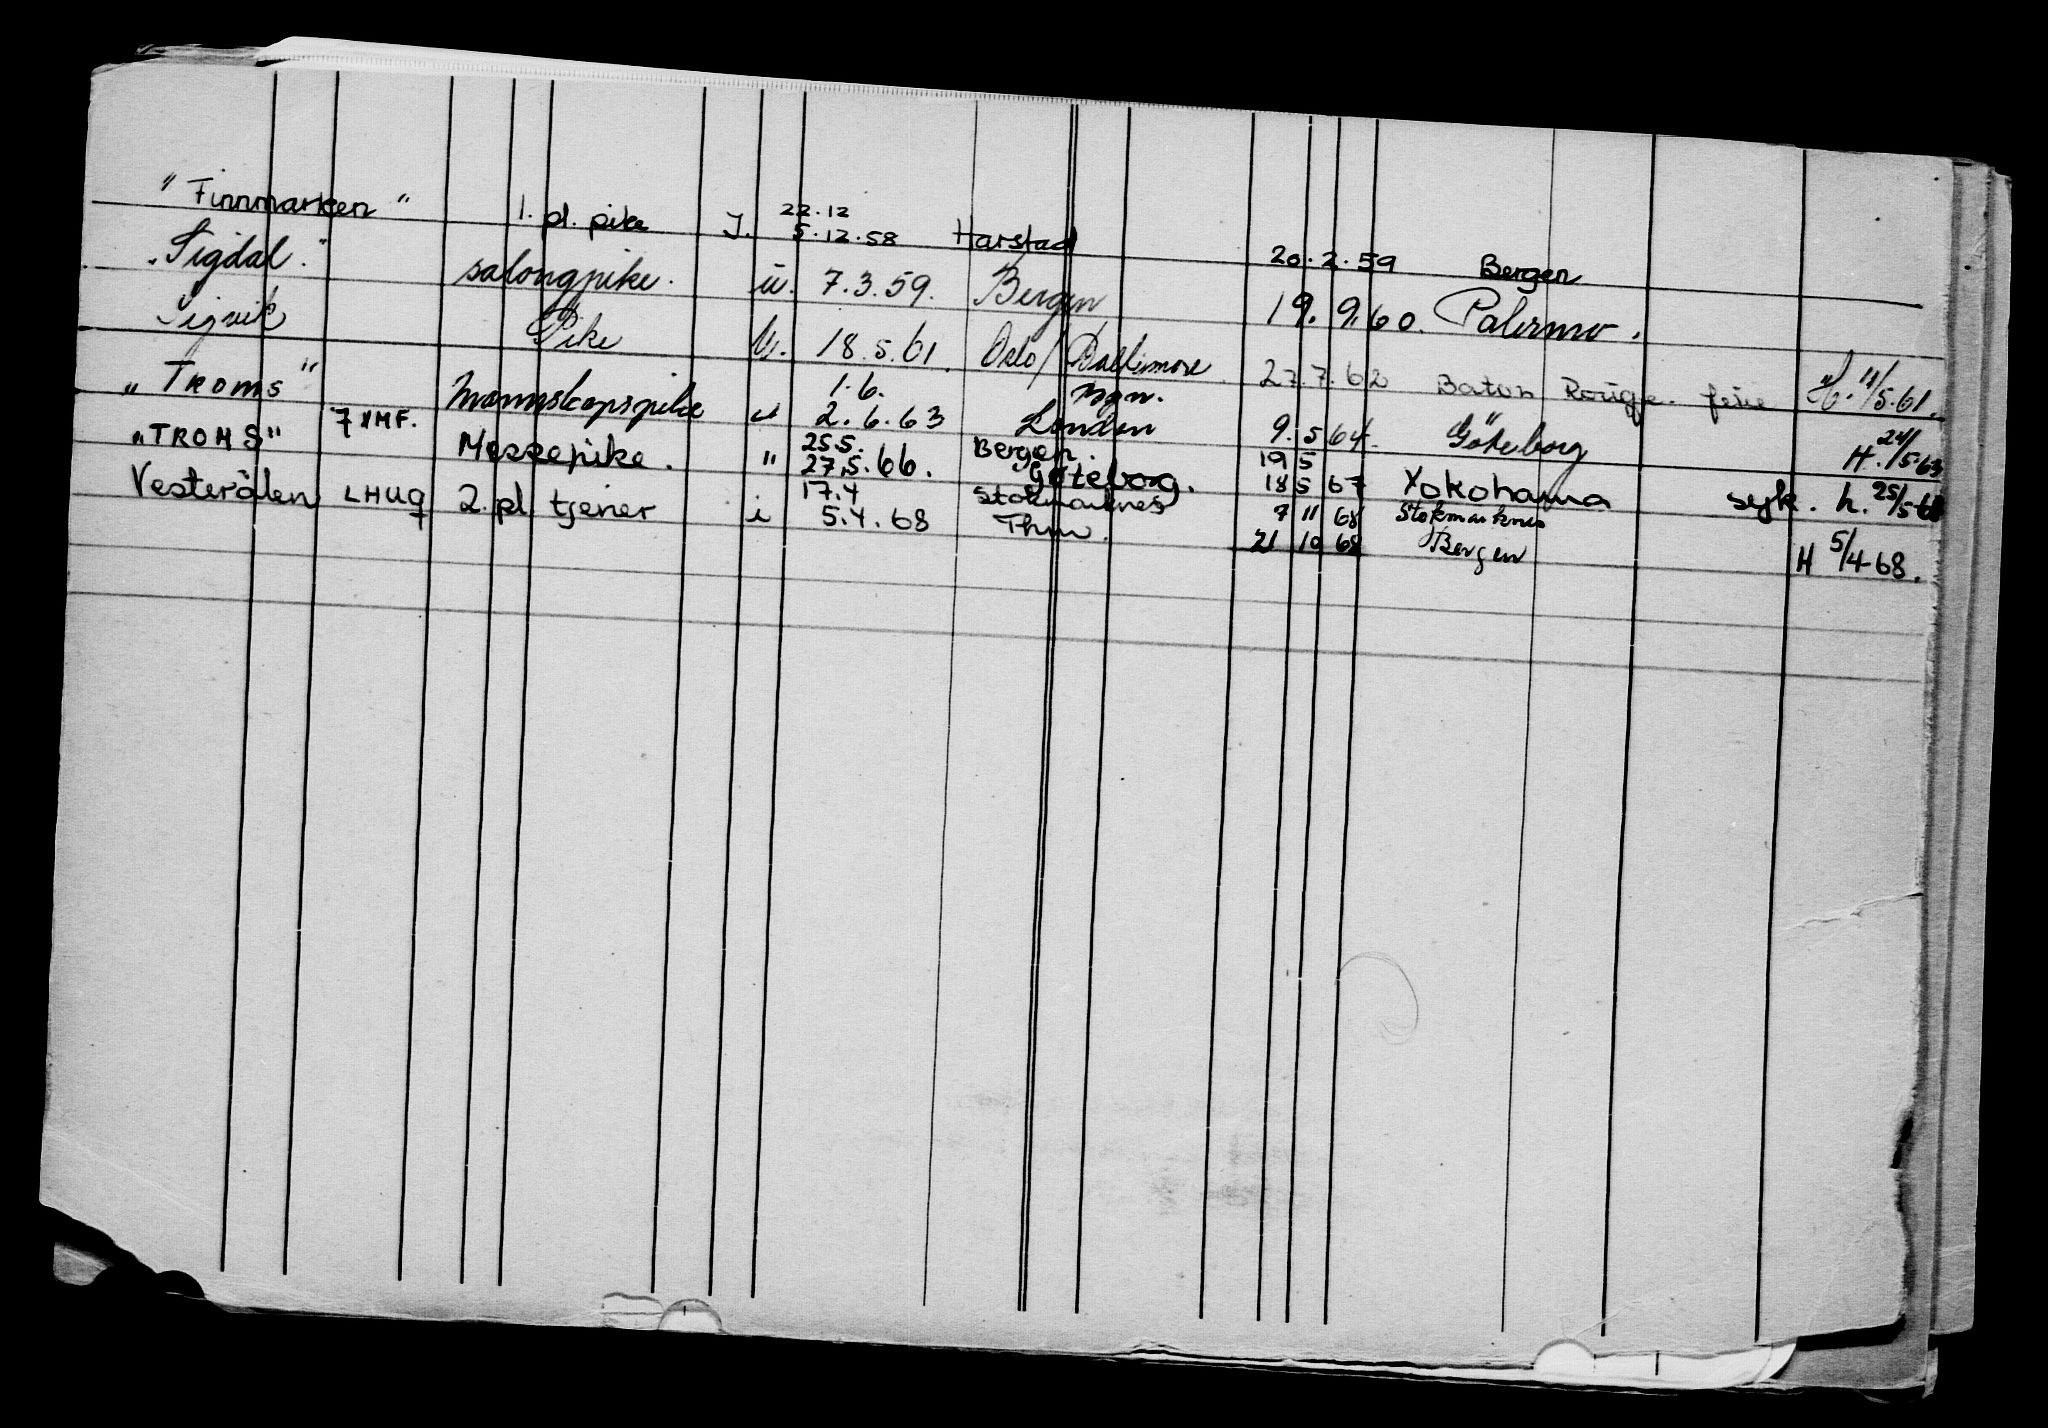 "Finnmarken" 1. pl. pike J. 22.12 5.12.58 Harstad 20.2.59 Bergen
"Sigdal." salongpike. u. 7.3.59. Bergen 19.9.60. Palermo.
Sigvik Pike u. 18.5.61. Oslo/Baltimore 27.7.62 Baton Rouge. ferie H. 11/5.61.
"Troms" mannskapspike u 1.6. 2.6.63 London 9.5 64. Göteborg H. 24/5-63
"TROMS" Messepike. " 25.5. 27.5.66. Bergen. Göteborg. 19 5 18 5 67 Yokohama syk. h. 25/5-66
Vesterålen LHUQ 2. pl tjener i 17.4 5.4.68 Stokmarknes Thm. 7 11 68 Stokmarknes
21 10 68 Bergen H 5/4-68.